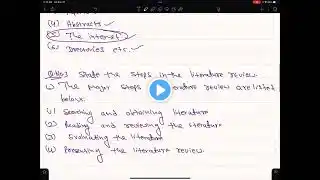 (4) Abstracts
(5) The internet
(6) Directories etc.
Q.No3 State the steps in the literature review.
The major steps literature review are listed
below:
(1) Searching and obtaining literature
(2) Reading and reviewing the literature
(3) Evaluating the literature
(4) Presenting the literature review.